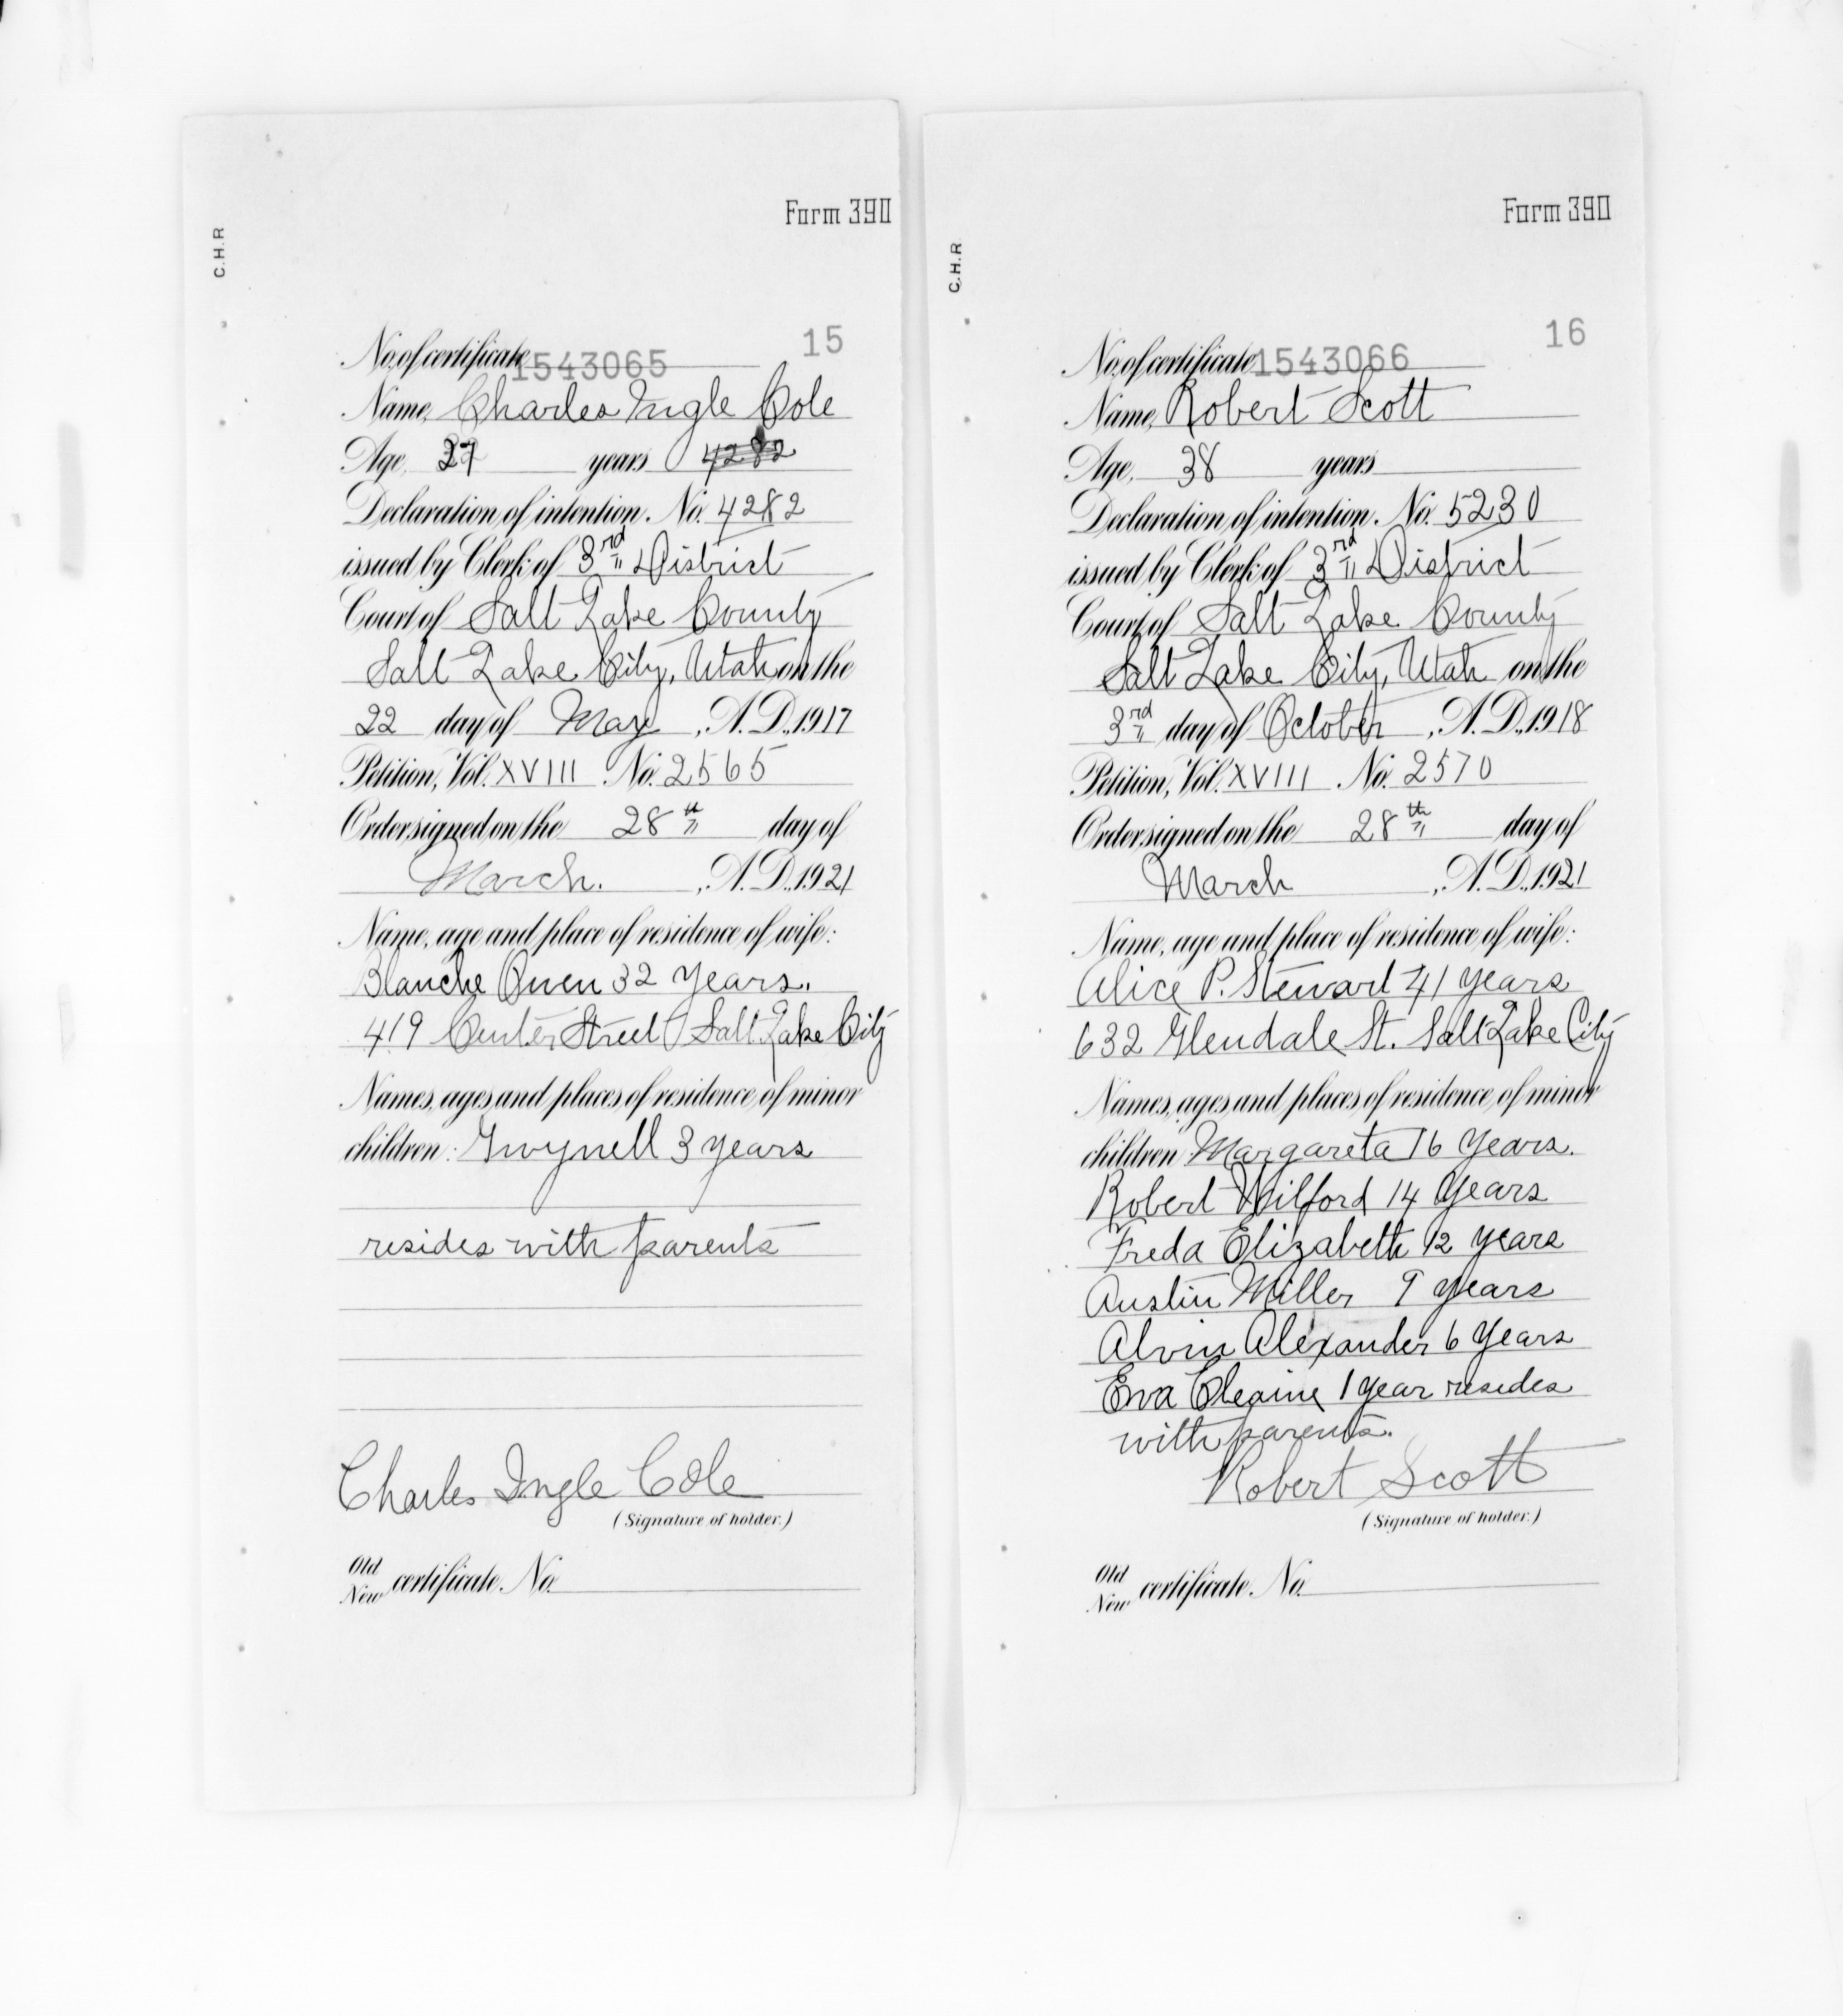 Form 390
C.H.R
15
No. of certificate 1543065
Name, Charles Ingle Cole
Age, 37 years 4282
Declaration of intention, No. 4282
issued by Clerk of 3rd District
Court of Salt Lake County
Salt Lake City, Utah on the
22 day of May, A.D. 1917
Petition, Vol. XVIII No. 2565
Order signed on the 28th day of
March. , A.D. 1921
Name, age and place of residence of wife:
Blanche Owen 32 years.
419 Center Street Salt Lake City
Names, ages and places of residence of minor
children: Gwynell 3 years
resides with parents
Charles Ingle Cole
(Signature of holder.)
Old
New certificate No.
Form 390
C.H.R
16
No. of certificate 1543066
Name, Robert Scott
Age, 38 years
Declaration of intention, No. 5230
issued by Clerk of 3rd District
Court of Salt Lake County
Salt Lake City, Utah on the
3rd day of October, A.D. 1918
Petition, Vol. XVIII No. 2570
Order signed on the 28th day of
March , A.D. 1921
Name, age and place of residence of wife:
Alice P. Stewart 41 years
632 Glendale St. Salt Lake City
Names, ages and places of residence of minor
children Margareta 16 years.
Robert Wilford 14 years
Freda Elizabeth 12 years
Austin Miller 9 years
Alvin Alexander 6 years
Eva 1 year resides
with parents.
Robert Scott
(Signature of holder.)
Old
New certificate No.